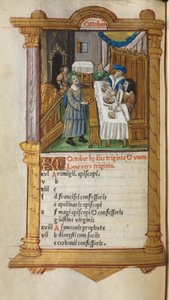 October
October hʒ dies triginta & unum.
Luna vero triginta.
xvi A remigii episcopi
v b
xiii c
ii d francisci confessoris
e apolinaris episcopi
x f magi episcopi & confessoris
g iustine virginis
xviii A symeonis prophete
vii b dionysii
c cerbonii confessoris